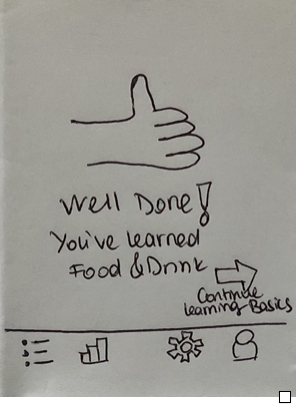 Well Done!
You've learned
Food & Drink
Continue
learning Basics